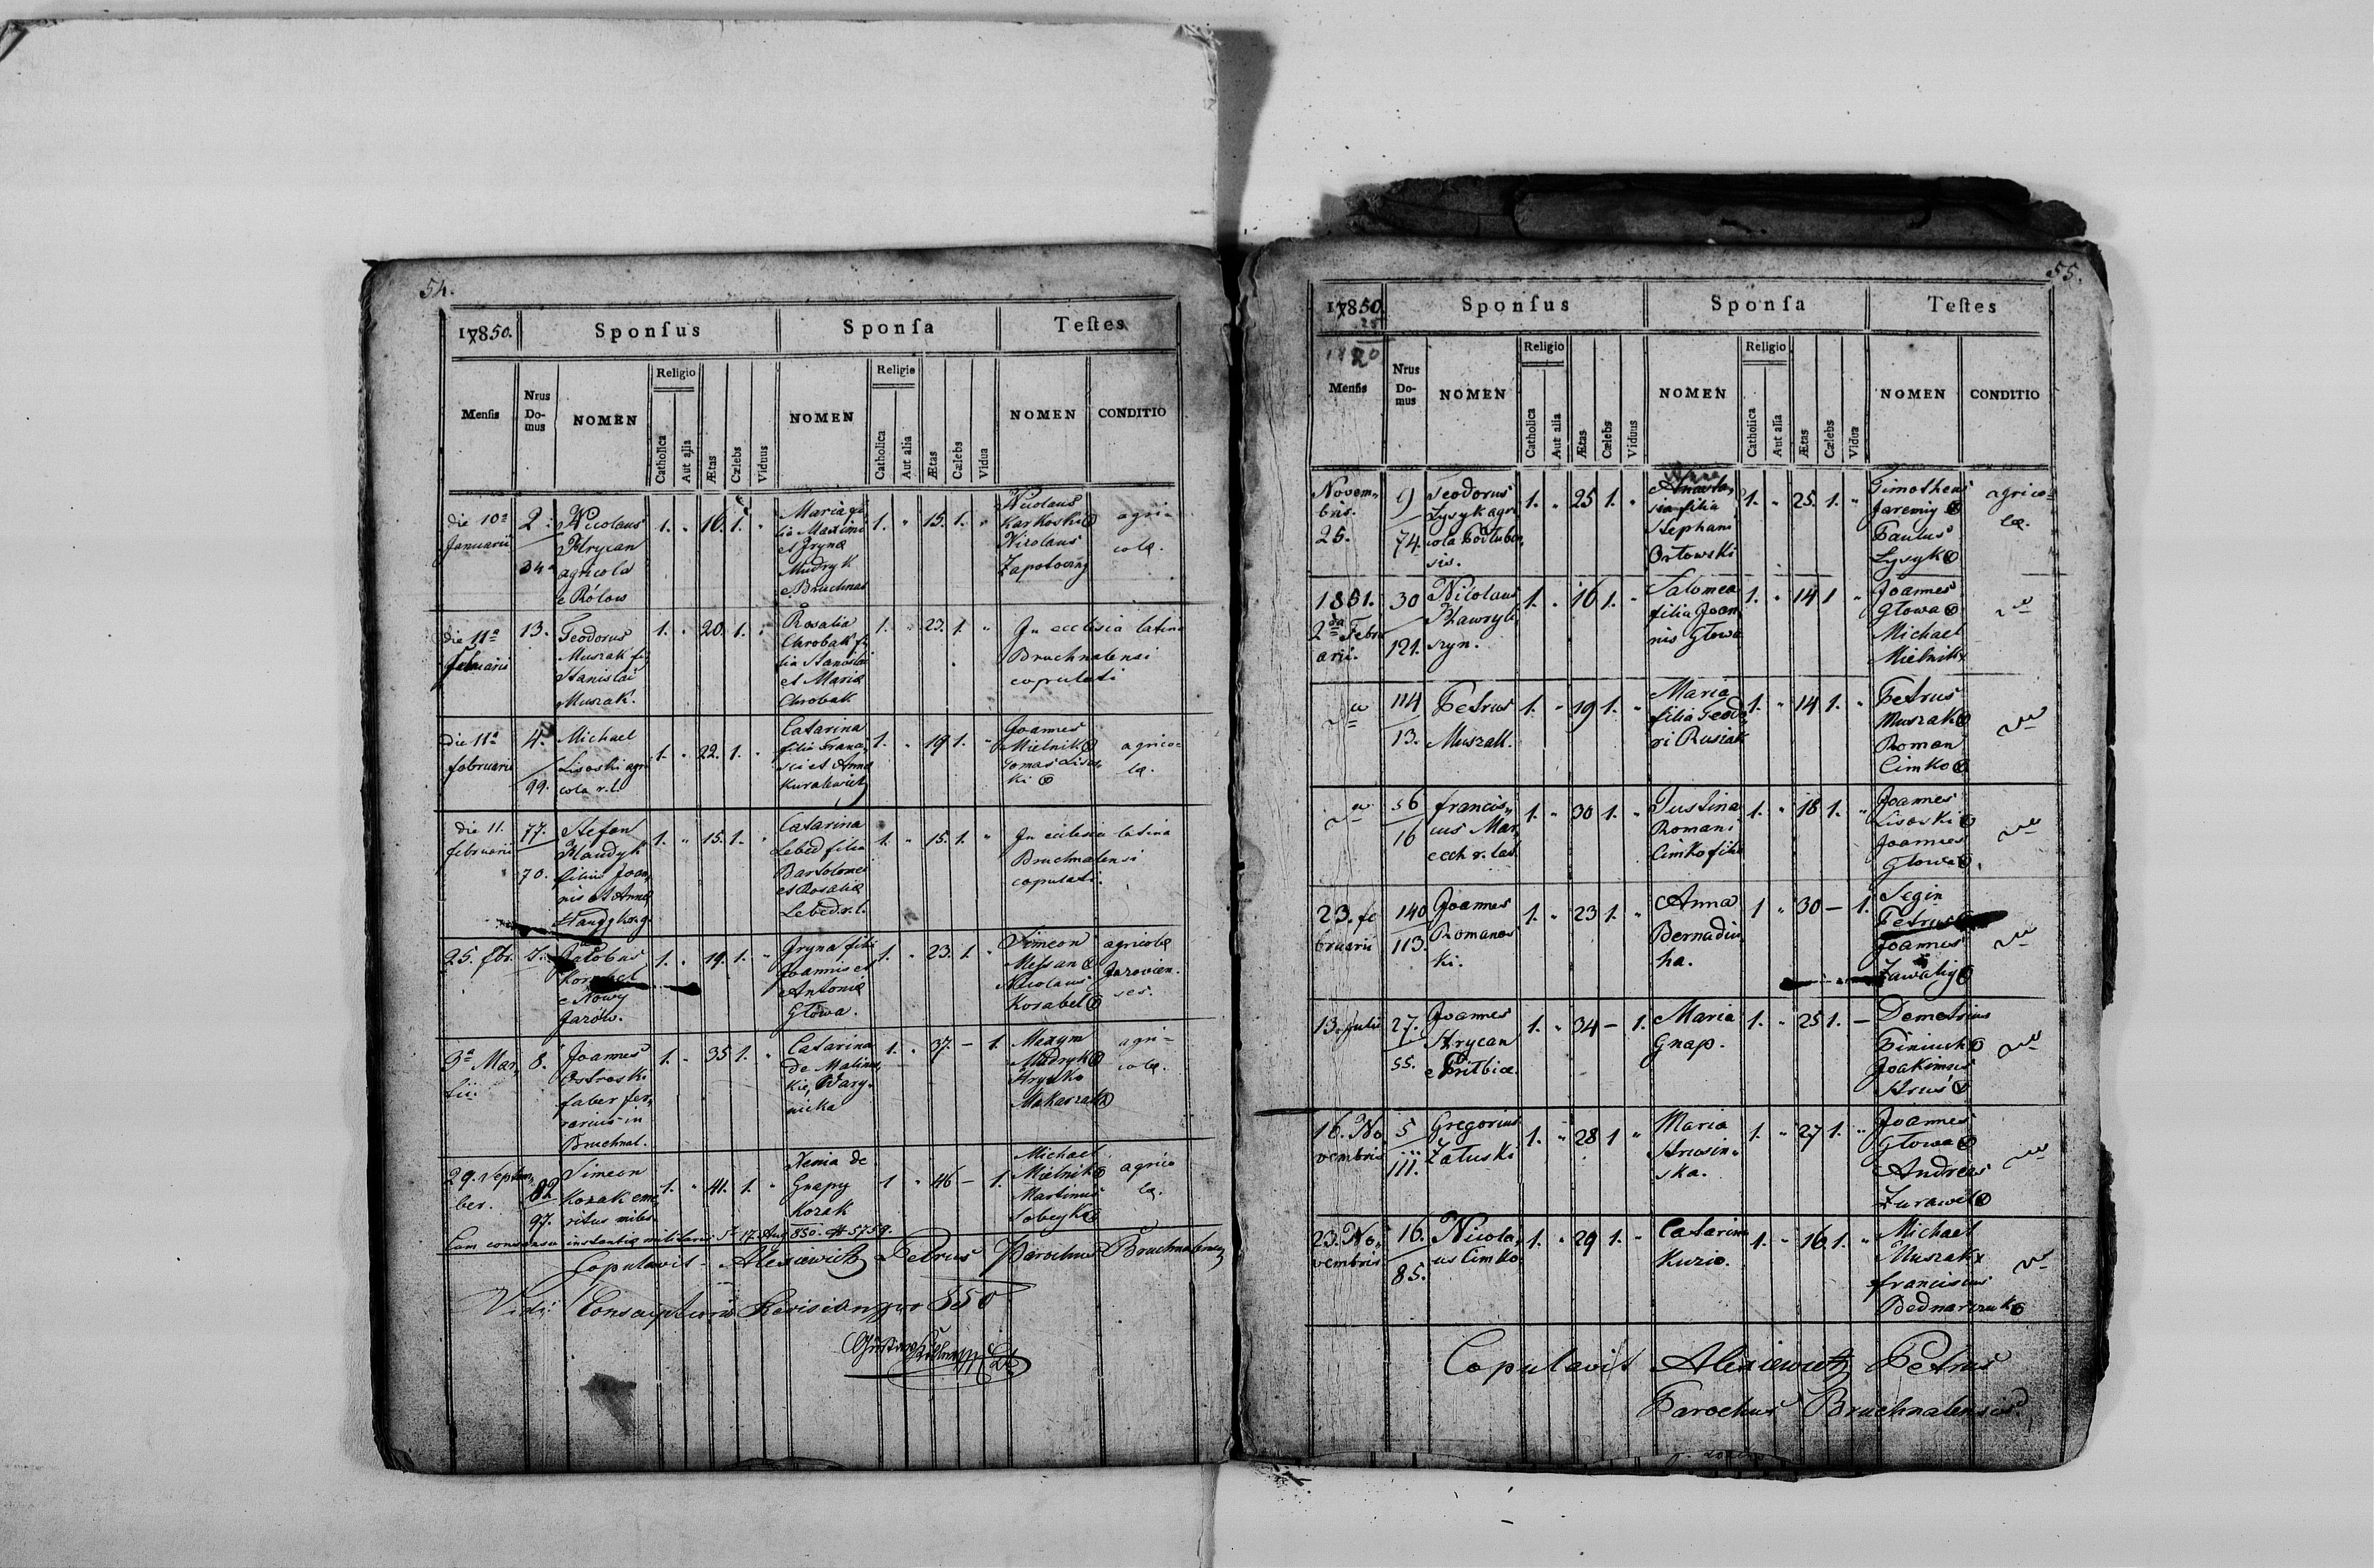 54.
17850. Sponsus Sponsa Testes
Mensis Nrus Domus NOMEN Religio Catholica Aut alia Ætas Cælebs Viduus NOMEN Religio Catholica Aut alia Ætas Cælebs Vidua NOMEN CONDITIO
die 10a
Januarii
2.
34
Nicolaus
Hrycan
agricola
e Rólow
1. " 16. 1. "
Maria fi
lia Maximi
et Iryna
Mudryk
e Bruchnal
1. " 15. 1. "
Nicolaus
Karkoski
Nicolaus
Zapotoczny
agri=
colæ.
die 11a
februarii
13.
Teodorus
Muszak fi
Stanislai
Muszak.
1. " 20. 1. "
Rosalia
Chrobak fi
lia Stanislai
et Maria
Chrobak
1. " 23. 1. "
In ecclesia latina
Bruchnalensi
copulati
die 11a
februarii
4.
99.
Michael
Lisoski agri
cola r. l.
1. " 22. 1. "
Catarina
filia Franci
sci et Anna
Kuraliewicz
1. " 19 1. "
Joannes
Mielnik
Tomas Lisos
ki
agrico=
læ.
die 11.
februarii
77.
70.
Stefan
Handyk
filius Joan
nis et Anna
Handyk r. g.
1. " 15. 1. "
Catarina
Lebed filia
Bartolomei
et Rosalia
Lebed r. l.
1. " 15. 1. "
In ecclesia latina
Bruchnalensi
copulati.
25. fbr.
Jacobus
Korabel
e Nowy
Jazów.
1. " 19. 1. "
Iryna filia
Joannis et
Antonia
Głowa.
1. " 23. 1. "
Simeon
Messan
Nicolaus
Korabel
agricolæ
Jazovien.
ses.
3a Mar,
tii.
8.
Joannes
Ostroski
faber fer,
rarius in
Bruchnal.
1. " 35 1. "
Catarina
de Malinos,
kie, Wary,
nicka
1. " 37. – 1.
Maxym
Mudryk
Hryńko
Makarzak
agri=
colæ.
29. Septem,
ber.
82
97.
Simeon
Kozak eme,
ritus miles.
1. " 41. 1. "
Xenia de
Gnapy
Kozak
1 " 46 – 1.
Michael
Mielnik
Martinus
Sobeyko
agrico
læ.
Cum consensu instantiæ militaris 17. Aug 850. # 5759.
Copulavit – Alexiewicz Petrus Parochus Bruchnalensis
Vidi Conscriptionis Revision pro 850
55.
17850. Sponsus Sponsa Testes
Mensis Nrus Domus NOMEN Religio Catholica Aut alia Ætas Cælebs Viduus NOMEN Religio Catholica Aut alia Ætas Cælebs Vidua NOMEN CONDITIO
Novem,
bris.
25.
9
74.
Teodorus
Lysyk agri
cola Podluben
sis.
1. " 25 1. "
Anasta,
sia filia
Stephani
Orłowski
1. " 25. 1. "
Timotheus
Jaremiy
Paulus
Lysyk
agrico=
læ.
1851.
2da Febru
arii.
30
121.
Nicolaus
Hawryli
szyn.
1. " 16 1. "
Salomea
filia Joan
nis Głowa
1. " 14 1 "
Joannes
Głowa
Michael
Mielnik
114
13.
Petrus
Muszak.
1. " 19 1. "
Maria
filia Teodo
ri Rusiak
1. " 14 1. "
Petrus
Muszak
Roman
Cimko
56
16
francis,
cus Mar,
cech r. lat
1. " 30 1. "
Justina
Romani
Cimko filia
1. " 18 1. "
Joannes
Lisoski
Joannes
Głowa
23. fe
bruarii
140
113.
Joannes
Romanos
ki.
1. " 23 1. "
Anna
Bernadiu
ha.
1 " 30 – 1.
Segin
Petrus
Joannes
Zawaliy
13. Julii
27.
55.
Joannes
Hrycan
e Pritbice
1. " 34 – 1.
Maria
Gnap.
1. " 25 1. –
Demetrius
Finiuch
Joakimus
Hruś
16. No
vembris
5
111.
Gregorius
Załuski
1. " 28 1 "
Maria
Hrosin,
ska.
1. " 27 1. "
Joannes
Głowa
Andreas
Zurawel
23. No,
vembris
16.
85.
Nicola,
us Cimko
1. " 29 1. "
Catarina
Kuzio.
1. " 16. 1. "
Michael
Muszak
franciscus
Bednarczuk
Copulavit Alexiewicz Petrus
Parochus Bruchnalensis